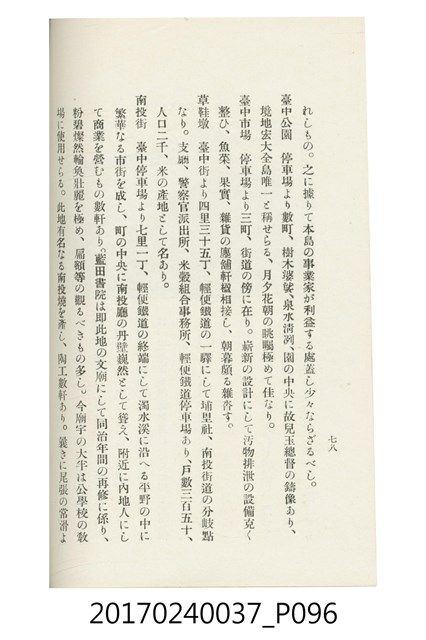 七八
れしもの。之に據りて本島の事業家が利益する處蓋し少々ならざるべし。
臺中公園　停車場より數町、樹木鬱蒼、泉水淸冽、園の中央に故兒玉總督の鑄像あり、
境地宏大全島唯一と稱せらる、月夕花朝の眺矚極めて佳なり。
臺中市場　停車場より三町、街道の傍に在り。嶄新の設計にして汚物排泄の設備克く
整ひ、魚菜、果實、雜貨の廛舖軒楹相接し、朝暮頗る雜沓す。
草鞋墩　臺中街より四里三十五丁、輕便鐵道の一驛にして埔里社、南投街道の分岐點
なり。支廳、警察官派出所、米穀組合事務所、輕便鐵道停車場あり、戶數三百五十、
人口二千、米の產地として名あり。
南投街　臺中停車場より七里一丁、輕便鐵道の終端にして濁水溪に沿へる平野の中に
繁華なる市街を成し、町の中央に南投廳の丹壁巍然として聳え、附近に內地人にし
て商業を營むもの數軒あり。藍田書院は卽此地の文廟にして同治年間の再修に係り、
粉碧燦然輪奐壯麗を極め、扁額等の觀るべきもの多し。今廟宇の大半は公學校の敎
場に使用せらる。此地有名なる南投燒を產し、陶工數軒あり。曩きに尾張の常滑よ
20170240037_P096